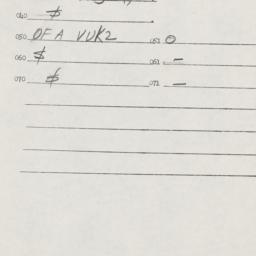 040 $
050 OF A VUK2 052 0
060 $ 061 -
070 $ 071 -